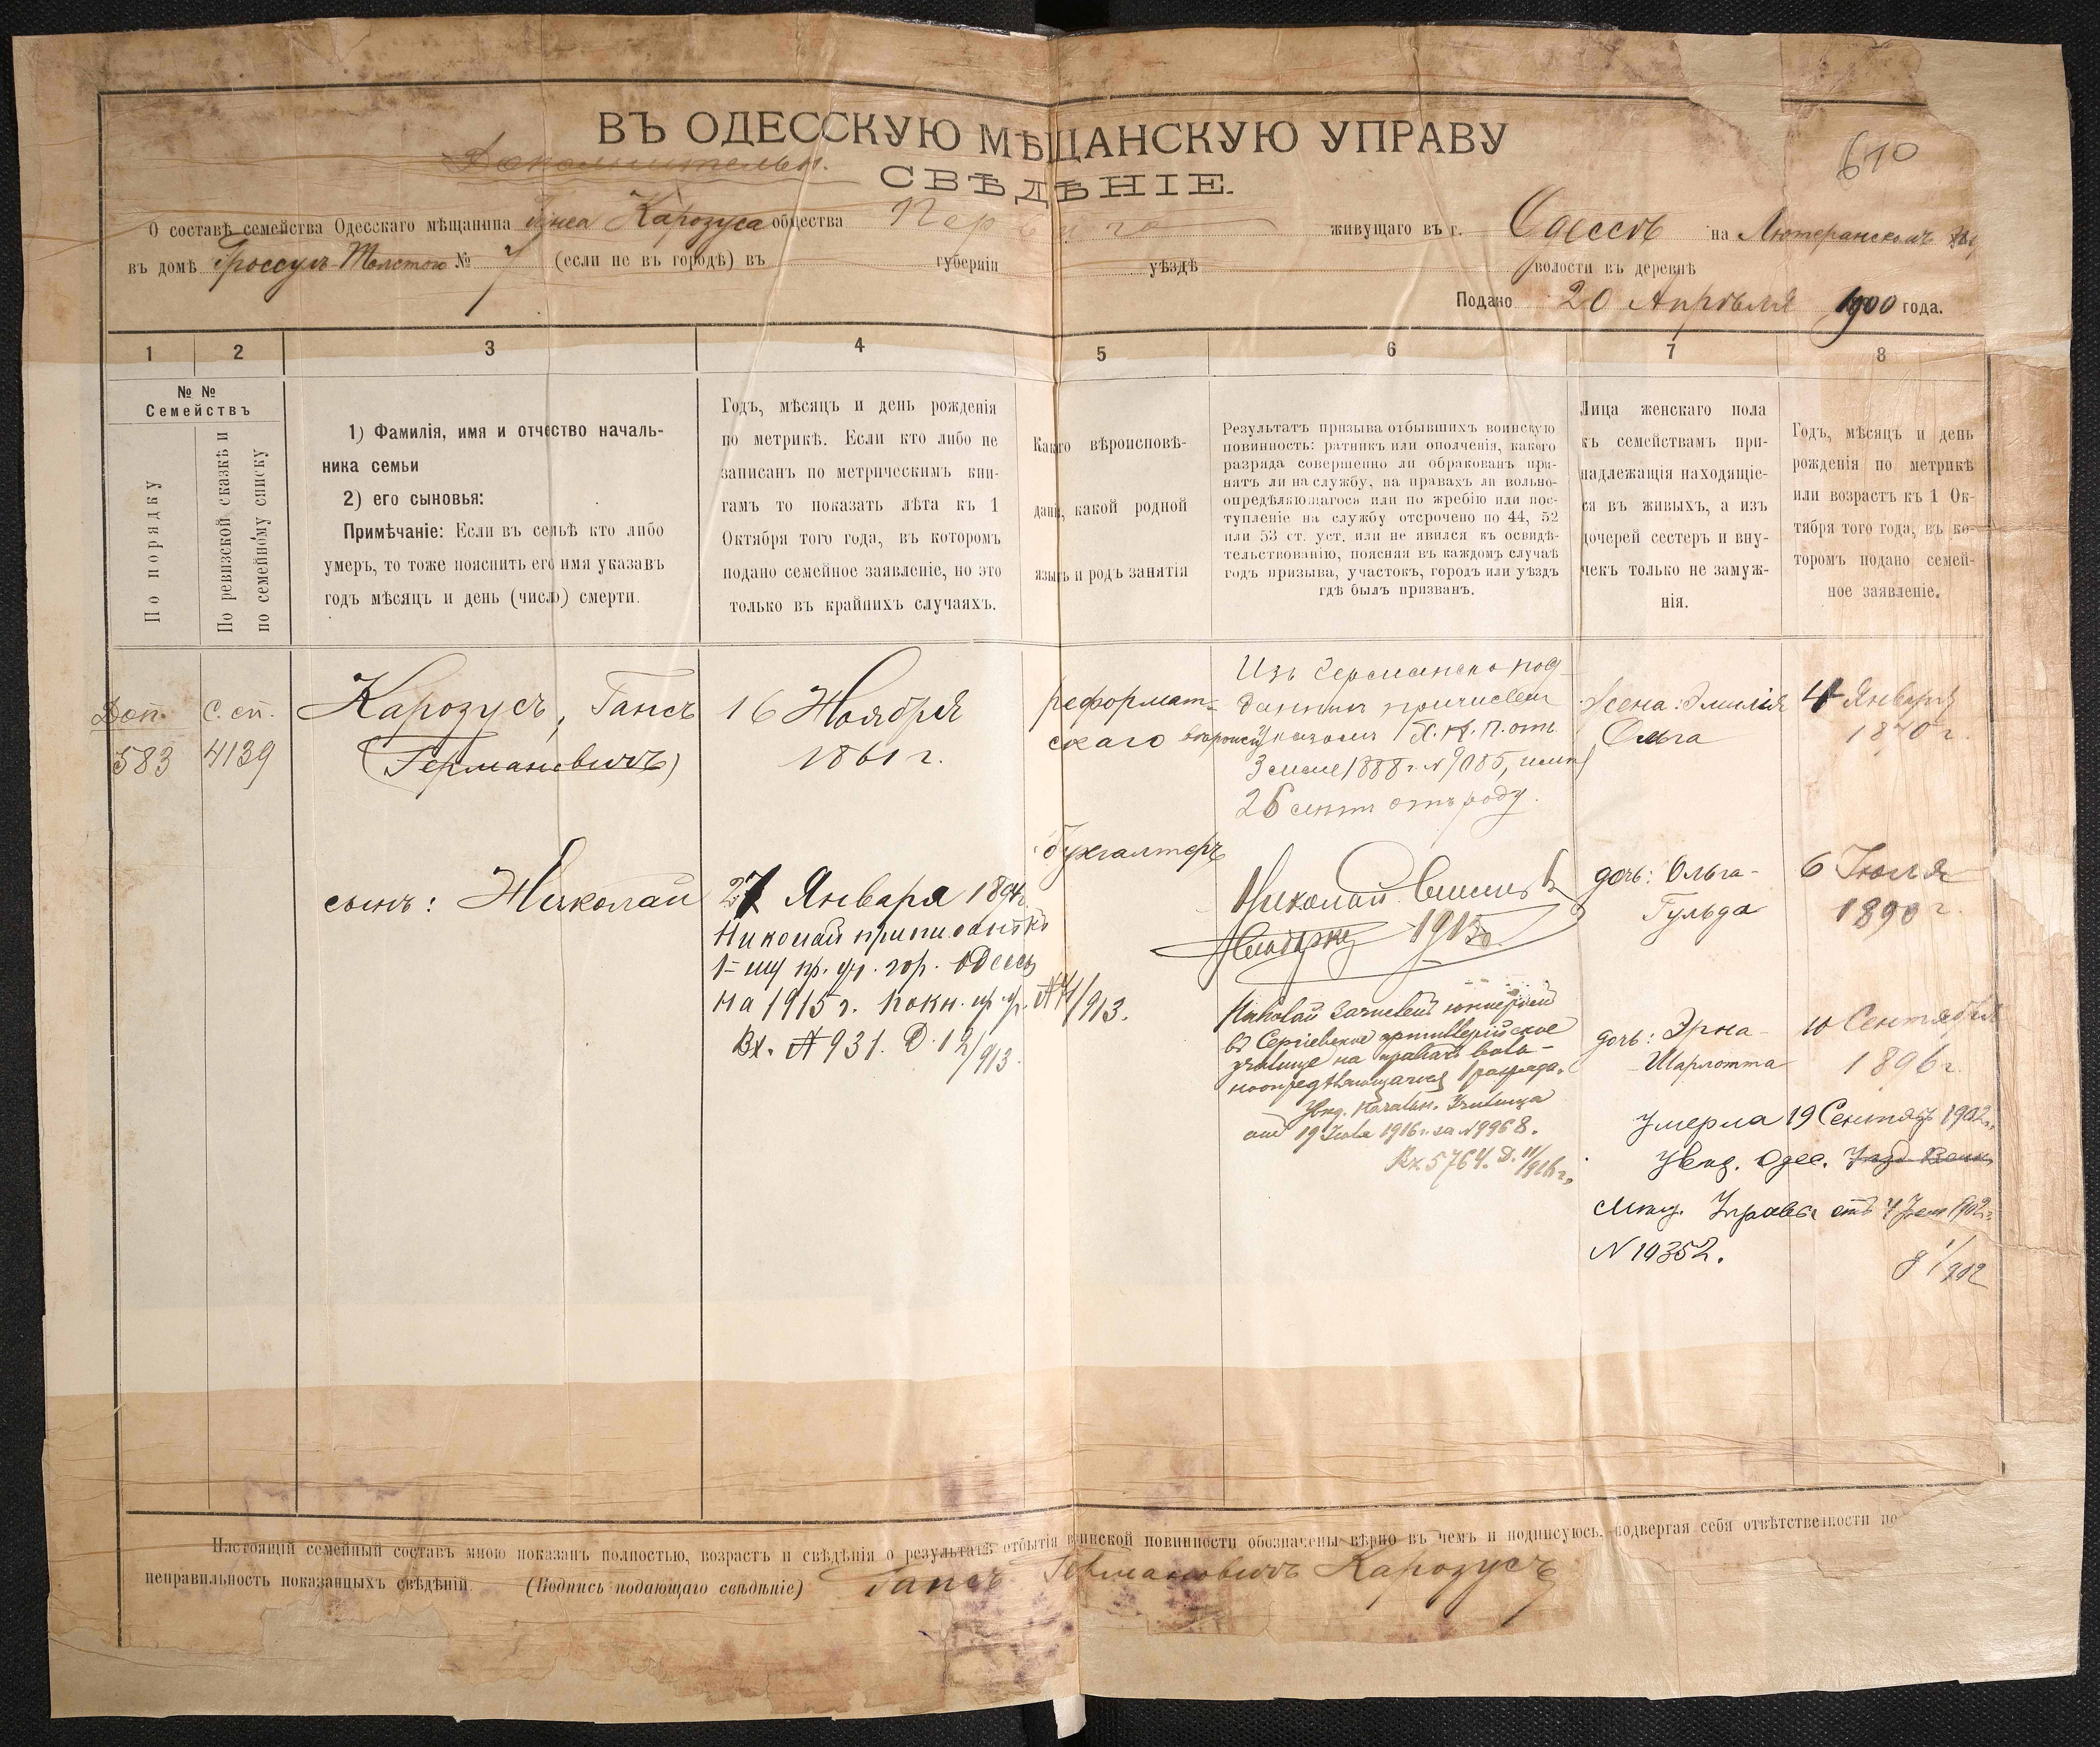 ВЪ ОДЕССКУЮ МѢЩАНСКУЮ УПРАВУ
Дополнительн.
СВѢДѢНІЕ.
610
О составѣ семейства Одесскаго мѣщанина Ганса Карозуса общества живущаго въ г. Одессѣ на Лютеранскомъ
въ домѣ Гроссулъ-Толстого № 7 (если не въ городѣ) въ губерніи уѣздѣ волости въ деревнѣ
Подано 20 Апрѣля 1900 года.
1 2 3 4 5 6 7 8
№ №
Семействъ
По порядку
По ревизской сказкѣ и
по семейному списку
1) Фамилія, имя и отчество началь-
ника семьи
2) его сыновья:
Примѣчаніе: Если въ семьѣ кто либо
умеръ, то тоже пояснить его имя указавъ
годъ мѣсяцъ и день (число) смерти.
Годъ, мѣсяцъ и день рожденія
по метрикѣ. Если кто либо не
записанъ по метрическимъ кни-
гамъ то показать лѣта къ 1
Октября того года, въ которомъ
подано семейное заявленіе, но это
только въ крайнихъ случаяхъ.
Какого вѣроисповѣ-
данія, какой родной
языкъ и родъ занятія
Результатъ призыва отбывшихъ воинскую
повинность: ратникъ или ополченія, какого
разряда совершенно ли обракованъ при-
нятъ ли на службу, на правахъ ли вольно-
опредѣляющагося или по жребію или пос-
тупленіе на службу отсрочено по 44, 52
или 53 ст. уст. или не явился къ освидѣ-
тельствованію, поясняя въ каждомъ случаѣ
годъ призыва, участокъ, городъ или уѣздъ
гдѣ былъ призванъ.
Лица женскаго пола
къ семействамъ при-
надлежащія находящіе-
ся въ живыхъ, а изъ
дочерей сестеръ и вну-
чекъ только не замуж-
нія.
Годъ, мѣсяцъ и день
рожденія по метрикѣ
или возрастъ къ 1 Ок-
тября того года, въ ко-
торомъ подано семей-
ное заявленіе.
Доп.
583
С. сп.
4139
Карозусъ, Гансъ
(Германовичъ)
16 Ноября
1861 г.
реформат-
скаго
бухгалтеръ
Изъ Германско под
данныхъ причислен
указомъ Х. К. П. отъ
1888 г. № 9085,
26 лѣтъ отъ роду.
Жена: Эмилія
Ольга
4 Января
1870 г.
сынъ: Николай
27 Января 1894 г.
Николай приписанъ къ
1-му пр. уч. гор. Одессы
на 1915 г.
Вх. № 931. Д. 12/913.
Николай
1915
Николай зачислен юнкером
въ Сергіевское артиллерійское
училище на правахъ воль-
ноопредѣляющагося 1 разряда.
Увѣд. Начальн. Училища
отъ 19 Іюля 1916 г. за № 9968.
Вх 5764. Д. 11/916 г.
дочь: Ольга-
Гульда
6 Іюля
1890 г.
дочь: Эрна-
Шарлотта
10 Сентября
1896 г.
Умерла 19 Сентяб 1902 г.
Увѣд. Одес.
Мѣщ. Управы отъ 4 1902 г.
N 10352.
Настоящій семейный составъ мною показанъ полностью, возрастъ и свѣдѣнія о результатѣ отбытія воинской повинности обозначены вѣрно въ чемъ и подписуюсь, подвергая себя отвѣтственности по
неправильность показанныхъ свѣдѣній. (Подпись подающаго свѣдѣніе) Гансъ Германовичъ Карозусъ